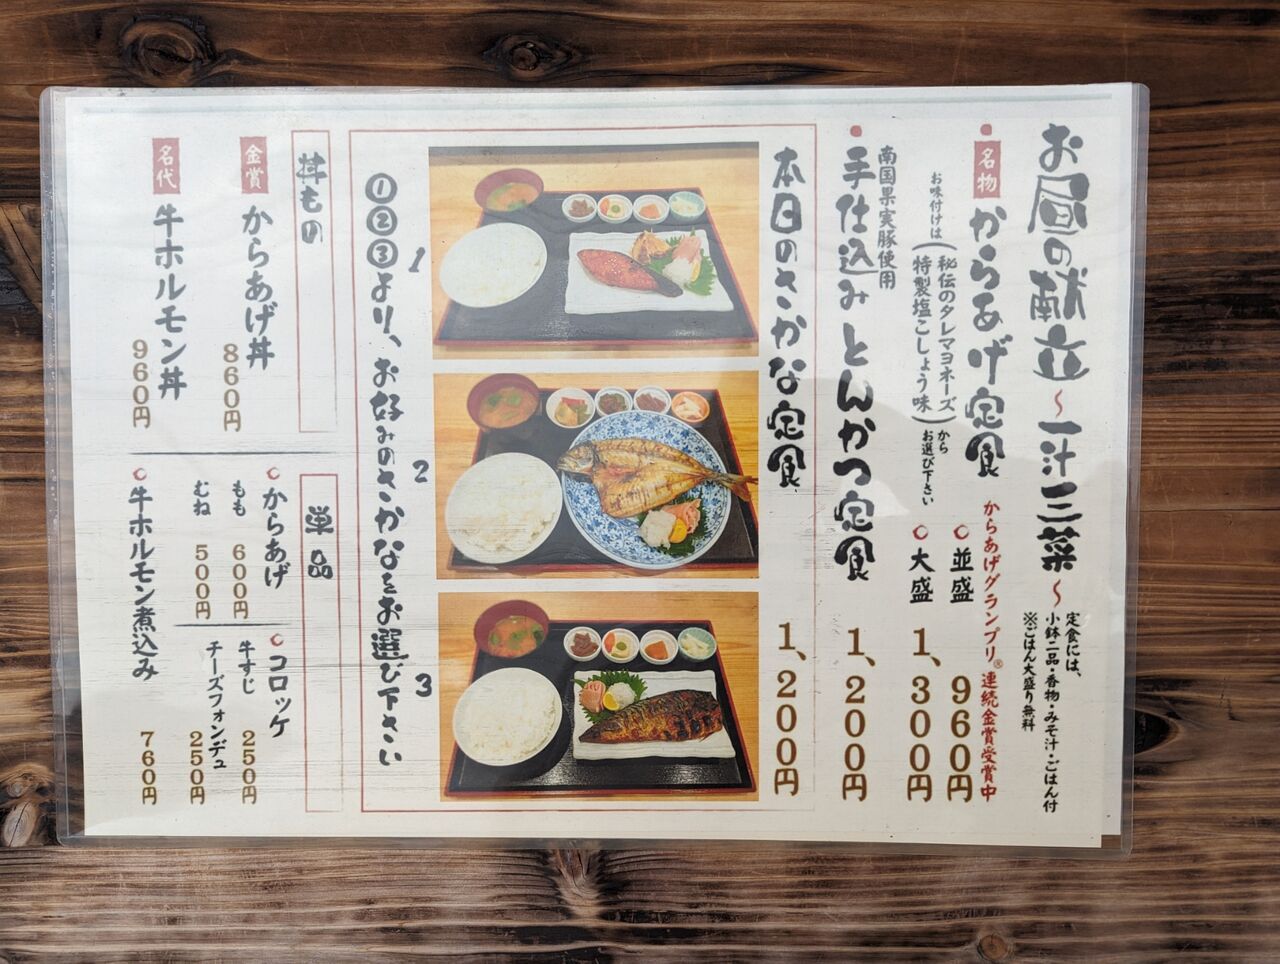 お昼の献立
〜一汁三菜〜
定食には、
小鉢二品・香物・みそ汁・ごはん付
※ごはん大盛り無料
名物
からあげ定食
からあげグランプリ®連続金賞受賞中
お味付けは
秘伝のタレマヨネーズ
特製塩こしょう味
から
お選び下さい
並盛 960円
大盛 1,300円
南国果実豚使用
手仕込みとんかつ定食 1,200円
本日のさかな定食 1,200円
1
2
3
①②③より、お好みのさかなをお選び下さい
丼もの
金賞
からあげ丼 860円
名代
牛ホルモン丼 960円
単品
からあげ
もも 600円
むね 500円
コロッケ
牛すじ 250円
チーズフォンデュ 250円
牛ホルモン煮込み 760円